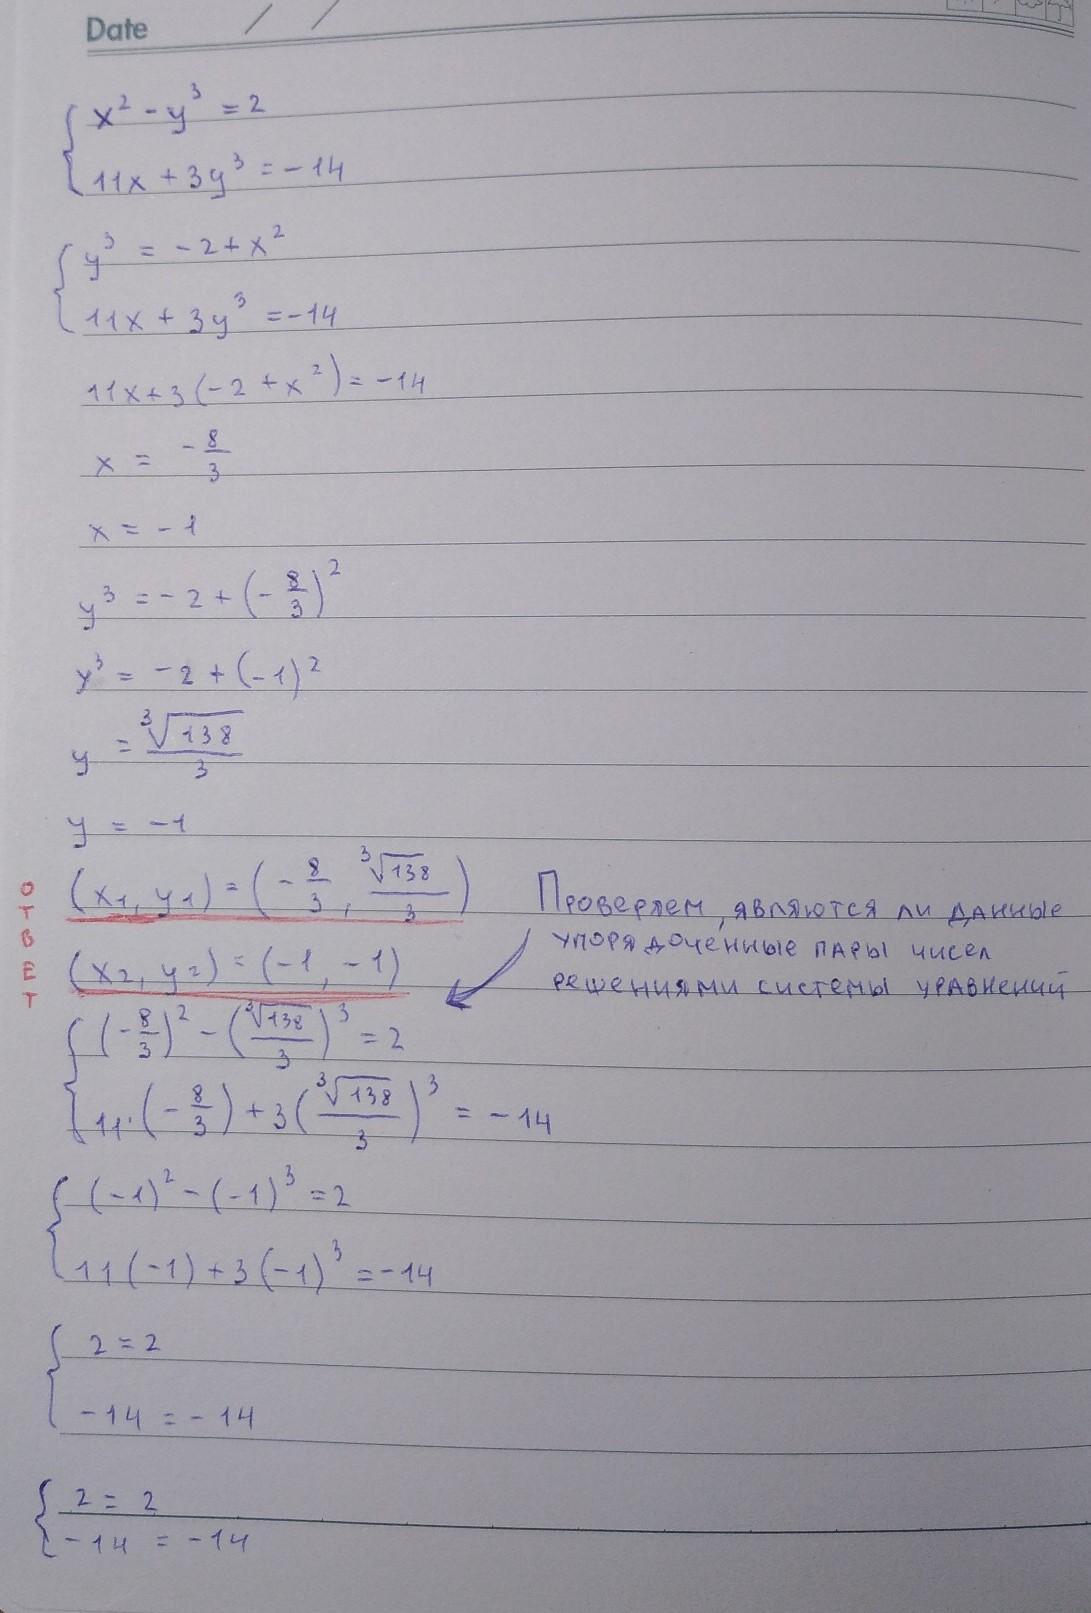 Date / /
{ x² - y³ = 2
11x + 3y³ = -14
{ y³ = -2 + x²
11x + 3y³ = -14
11x + 3(-2 + x²) = -14
x = -8/3
x = -1
y³ = -2 + (-8/3)²
y³ = -2 + (-1)²
y = ∛138/3
y = -1
ОТВЕТ
(x1, y1) = (-8/3, ∛138/3)
(x2, y2) = (-1, -1)
Проверяем, являются ли данные
упорядоченные пары чисел
решениями системы уравнений
{ (-8/3)² - (∛138/3)³ = 2
11·(-8/3) + 3(∛138/3)³ = -14
{ (-1)² - (-1)³ = 2
11(-1) + 3(-1)³ = -14
{ 2 = 2
-14 = -14
{ 2 = 2
-14 = -14